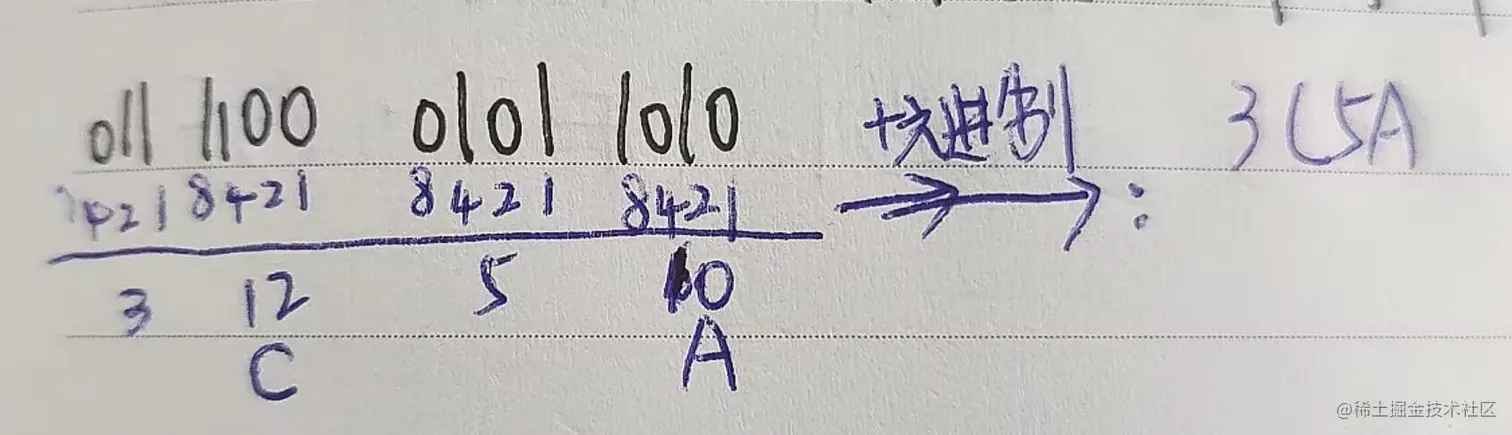 011 1100 0101 1010 十六进制 3C5A
421 8421 8421 8421 :
3 12 5 10
C A
@稀土掘金技术社区